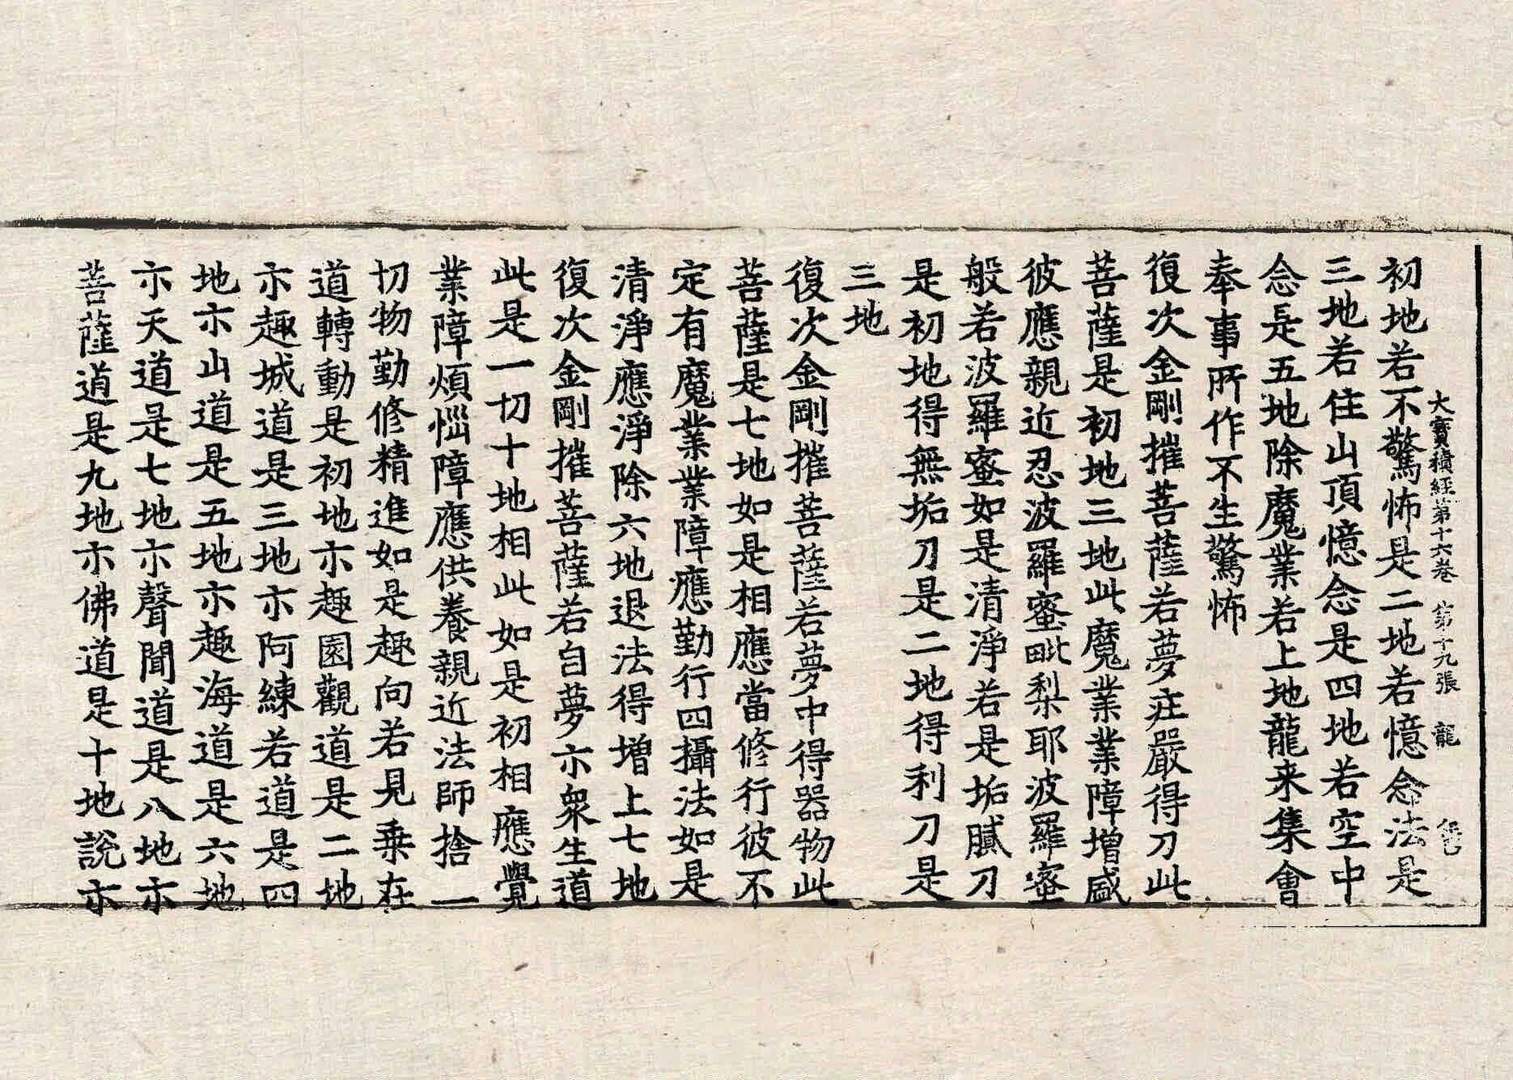 大寶積經第十六卷　第十九張　龍
初地若不驚怖是二地若憶念法是
三地若住山頂憶念是四地若空中
念是五地除魔業若上地龍来集會
奉事所作不生驚怖
復次金剛摧菩薩若夢莊嚴得刀此
菩薩是初地三地此魔業業障增盛
彼應親近忍波羅蜜毗梨耶波羅蜜
般若波羅蜜如是清淨若是垢膩刀
是初地得無垢刀是二地得利刀是
三地
復次金剛摧菩薩若夢中得器物此
菩薩是七地如是相應當修行彼不
定有魔業業障應勤行四攝法如是
清淨應淨除六地退法得增上七地
復次金剛摧菩薩若自夢亦衆生道
此是一切十地相此如是初相應覺
業障煩惱障應供養親近法師捨一
切物勤修精進如是趣向若見乗在
道轉動是初地亦趣園觀道是二地
亦趣城道是三地亦阿練若道是四
地亦山道是五地亦趣海道是六地
亦天道是七地亦聲聞道是八地亦
菩薩道是九地亦佛道是十地說亦